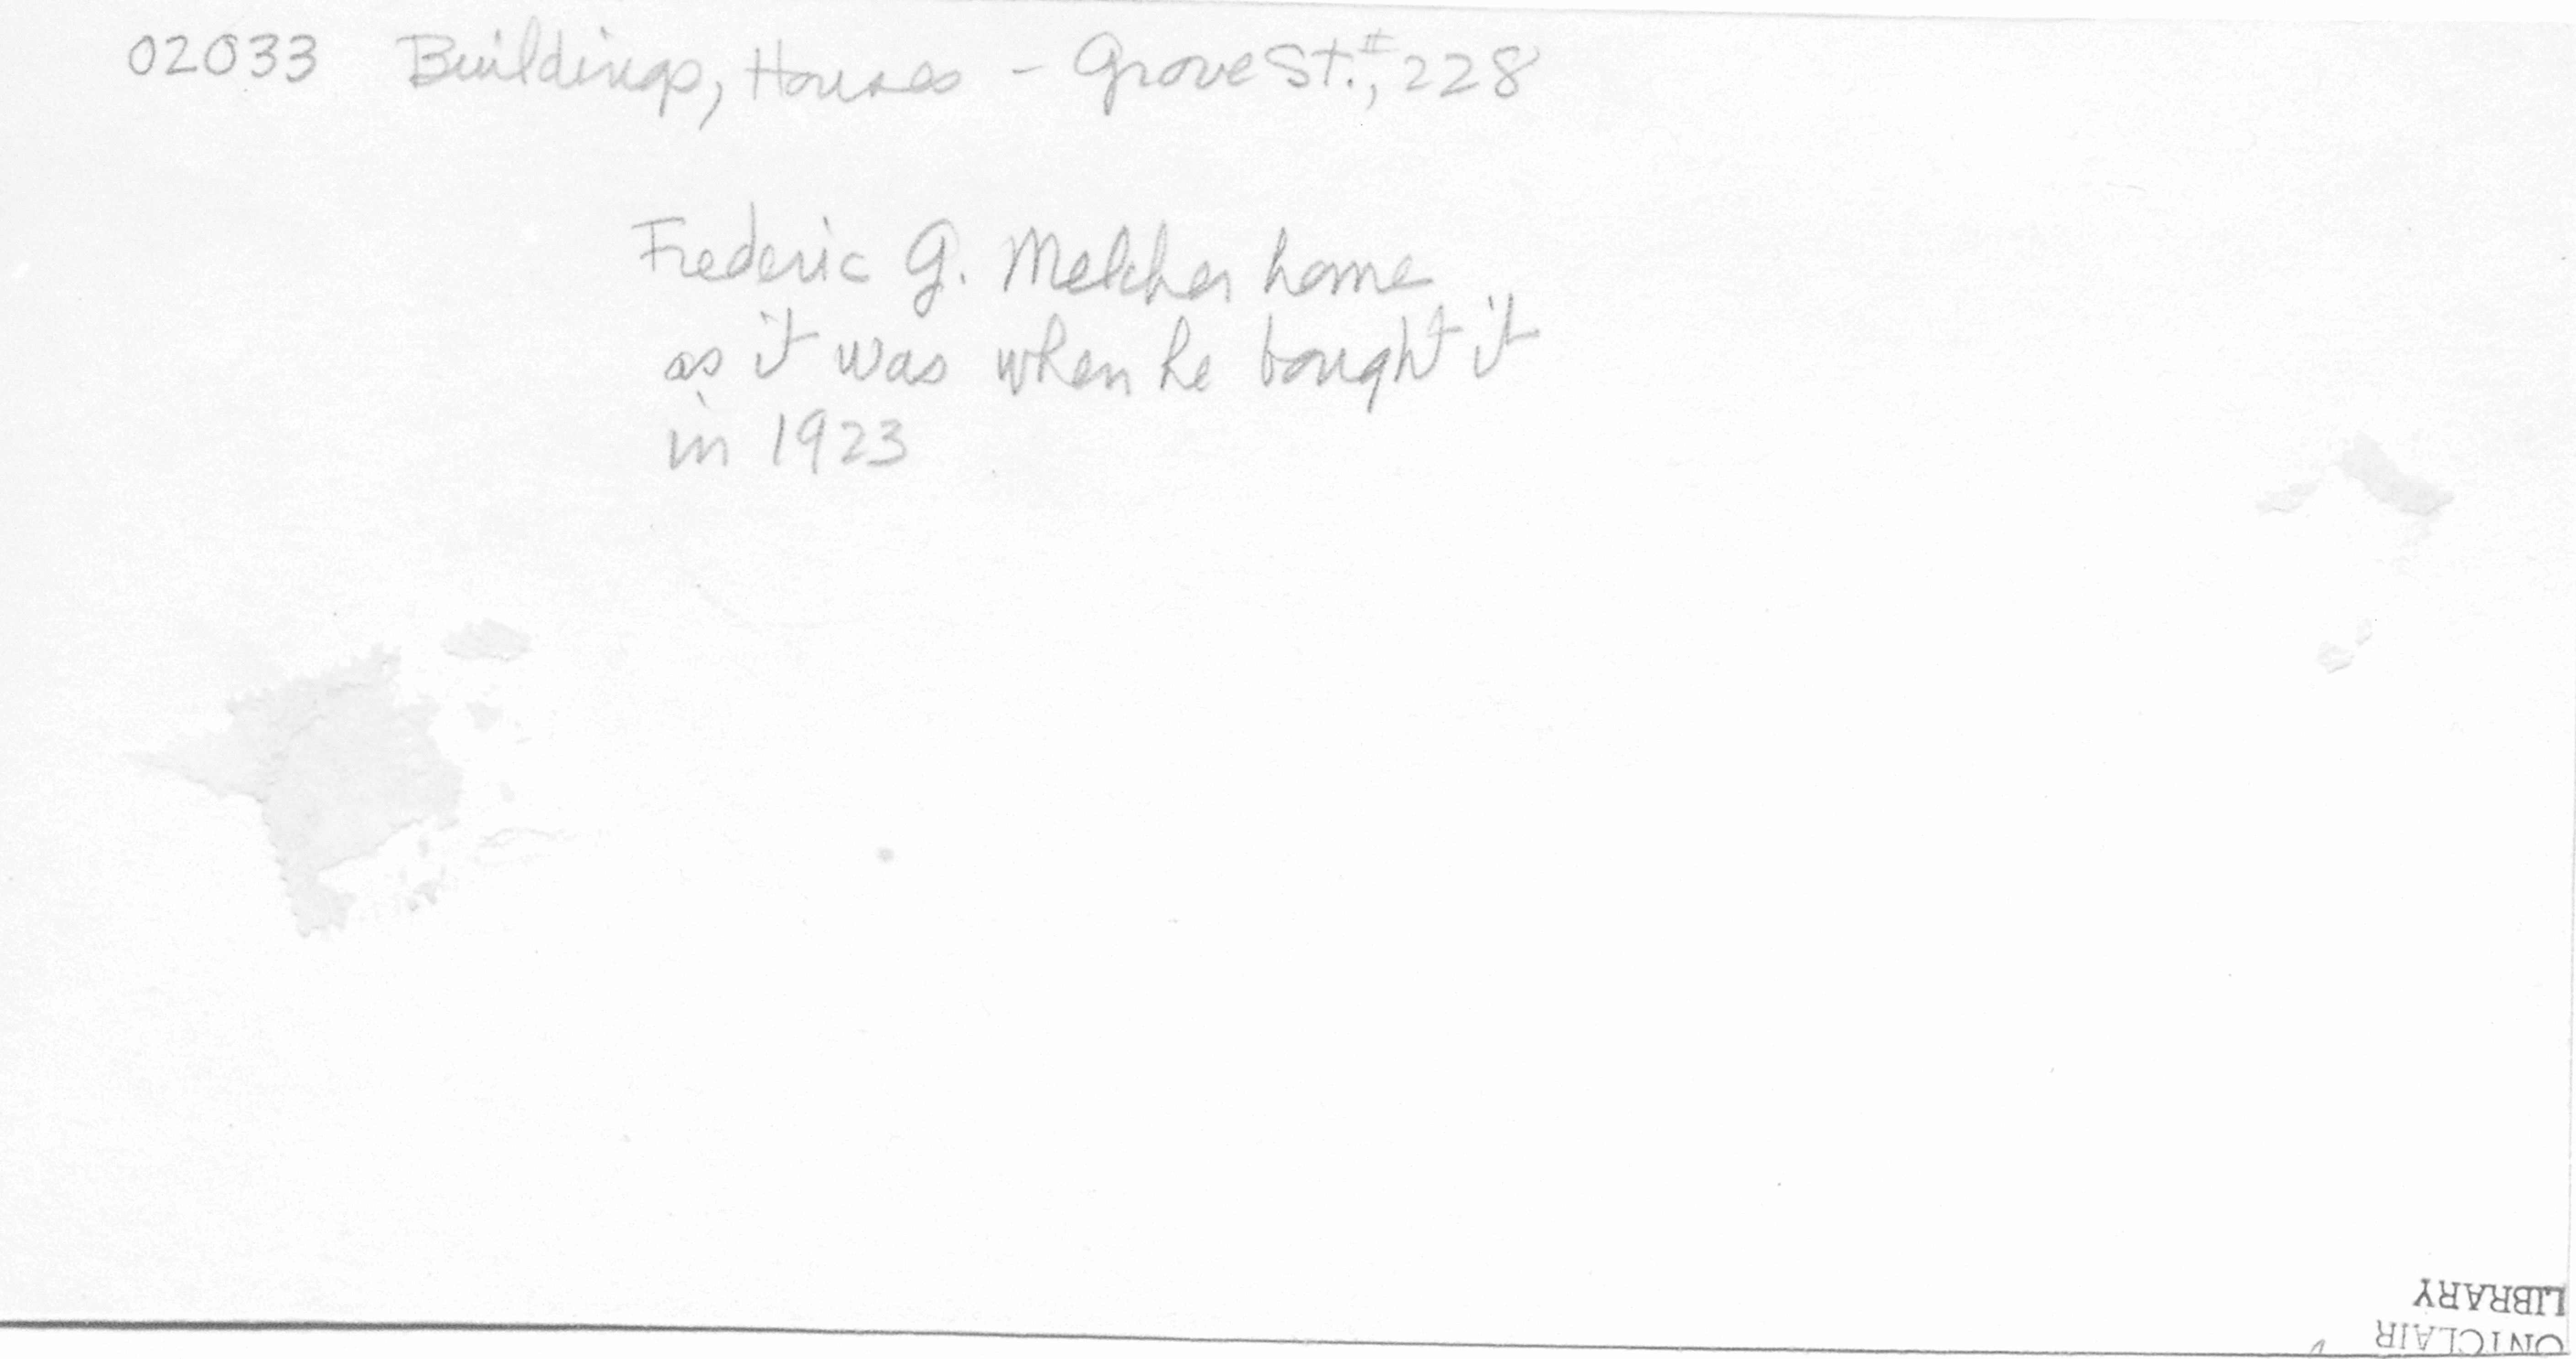 02033 Buildings, Houses - Grove St., #228
Frederic G. Melcher home
as it was when he bought it
in 1923
ONTCLAIR
LIBRARY